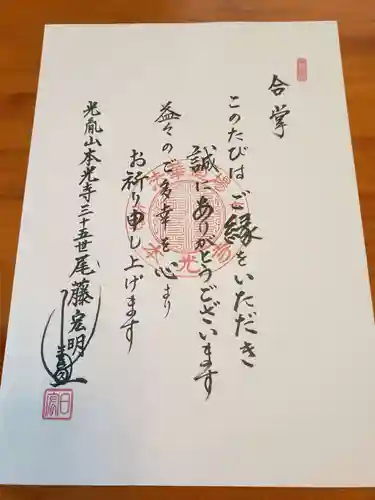 合掌
このたびはご縁をいただき
誠にありがとうございます
益々のご多幸を心より
お祈り申し上げます
光胤山本光寺三十五世尾藤宏明